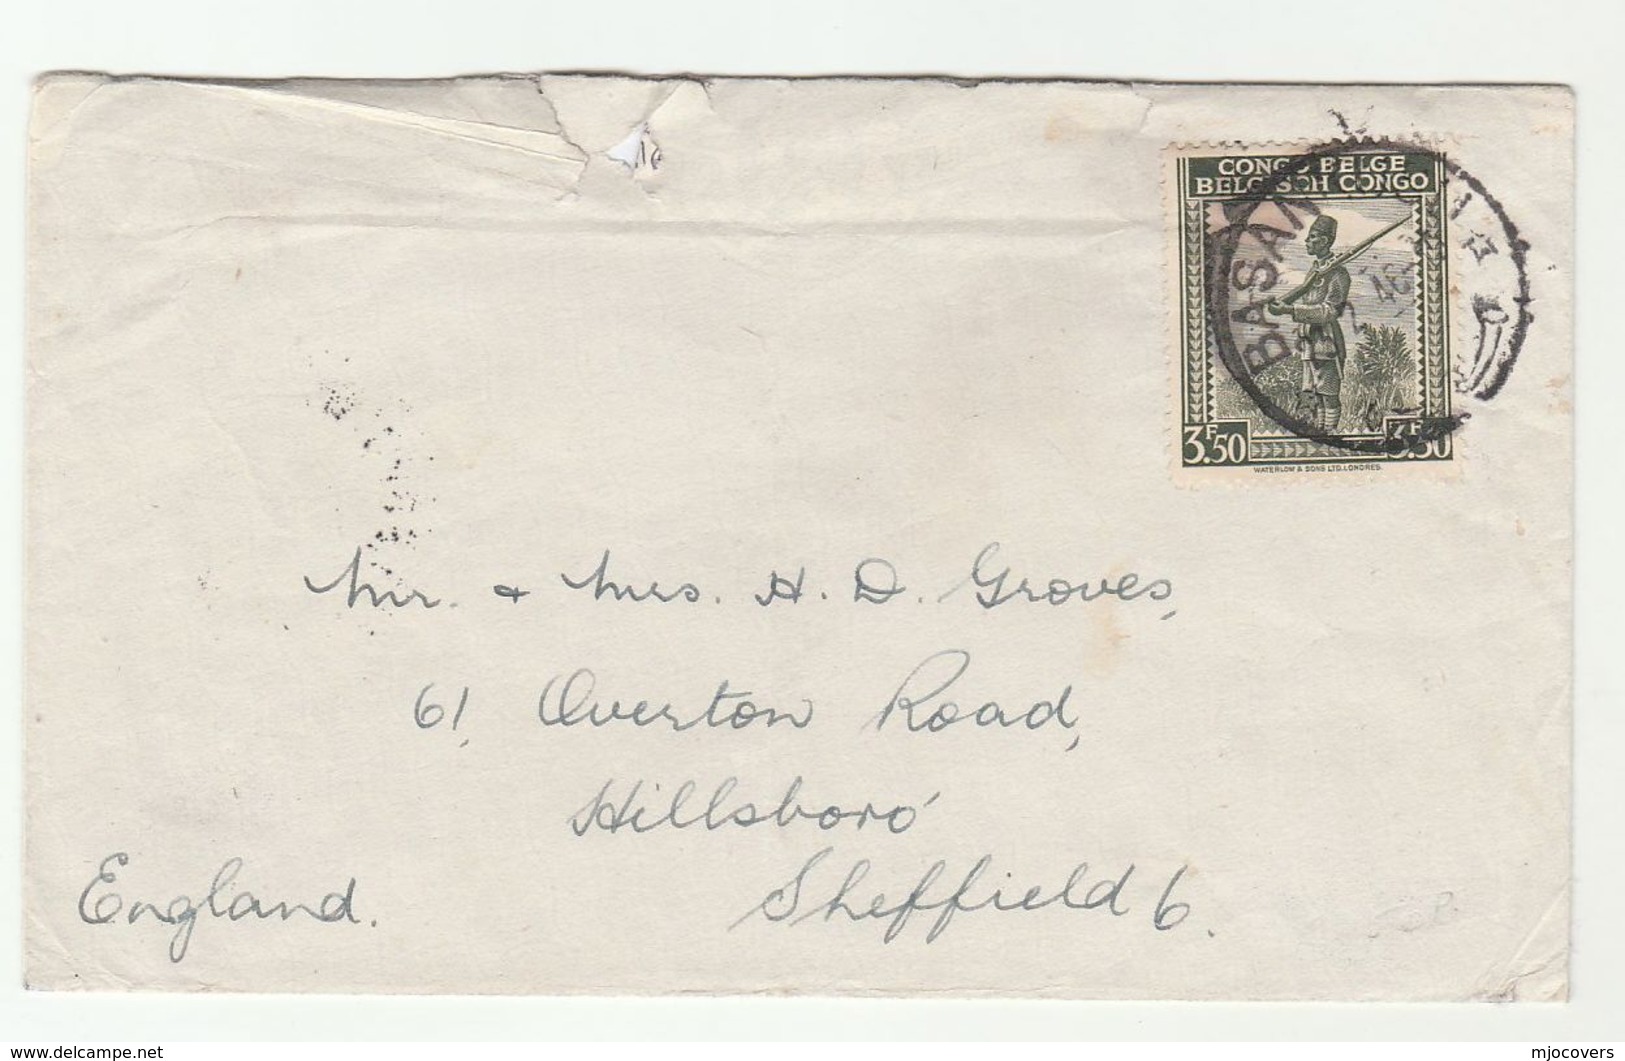 CONGO BELGE
BELGISCH CONGO
3F50 3F50
WATERLOW & SONS LTD. LONDRES.
2 46
Mr. + Mrs. H. D. Groves,
61, Overton Road,
Hillsboro'
Sheffield 6.
England.
delcampe.net
mjocovers